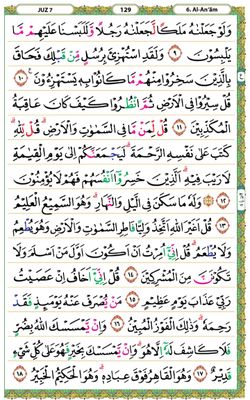 JUZ 7 129 6. Al-An'ām
وَلَوْ جَعَلْنٰهُ مَلَكًا لَّجَعَلْنٰهُ رَجُلًا وَّلَلَبَسْنَا عَلَيْهِمْ مَّا
يَلْبِسُوْنَ ﴿٩﴾ وَلَقَدِ اسْتُهْزِئَ بِرُسُلٍ مِّنْ قَبْلِكَ فَحَاقَ
بِالَّذِيْنَ سَخِرُوْا مِنْهُمْ مَّا كَانُوْا بِهٖ يَسْتَهْزِءُوْنَ ﴿١٠﴾
قُلْ سِيْرُوْا فِى الْاَرْضِ ثُمَّ انْظُرُوْا كَيْفَ كَانَ عَاقِبَةُ
الْمُكَذِّبِيْنَ ﴿١١﴾ قُلْ لِّمَنْ مَّا فِى السَّمٰوٰتِ وَالْاَرْضِ قُلْ لِّلّٰهِ
كَتَبَ عَلٰى نَفْسِهِ الرَّحْمَةَ لَيَجْمَعَنَّكُمْ اِلٰى يَوْمِ الْقِيٰمَةِ
لَا رَيْبَ فِيْهِ اَلَّذِيْنَ خَسِرُوْٓا اَنْفُسَهُمْ فَهُمْ لَا يُؤْمِنُوْنَ
﴿١٢﴾ وَلَهٗ مَا سَكَنَ فِى الَّيْلِ وَالنَّهَارِ وَهُوَ السَّمِيْعُ الْعَلِيْمُ
﴿١٣﴾ قُلْ اَغَيْرَ اللّٰهِ اَتَّخِذُ وَلِيًّا فَاطِرِ السَّمٰوٰتِ وَالْاَرْضِ وَهُوَ يُطْعِمُ
وَلَا يُطْعَمُ قُلْ اِنِّيْٓ اُمِرْتُ اَنْ اَكُوْنَ اَوَّلَ مَنْ اَسْلَمَ وَلَا
تَكُوْنَنَّ مِنَ الْمُشْرِكِيْنَ ﴿١٤﴾ قُلْ اِنِّيْٓ اَخَافُ اِنْ عَصَيْتُ
رَبِّيْ عَذَابَ يَوْمٍ عَظِيْمٍ ﴿١٥﴾ مَنْ يُّصْرَفْ عَنْهُ يَوْمَئِذٍ فَقَدْ
رَحِمَهٗ وَذٰلِكَ الْفَوْزُ الْمُبِيْنُ ﴿١٦﴾ وَاِنْ يَّمْسَسْكَ اللّٰهُ بِضُرٍّ
فَلَا كَاشِفَ لَهٗٓ اِلَّا هُوَ وَاِنْ يَّمْسَسْكَ بِخَيْرٍ فَهُوَ عَلٰى كُلِّ شَيْءٍ
قَدِيْرٌ ﴿١٧﴾ وَهُوَ الْقَاهِرُ فَوْقَ عِبَادِهٖ وَهُوَ الْحَكِيْمُ الْخَبِيْرُ ﴿١٨﴾